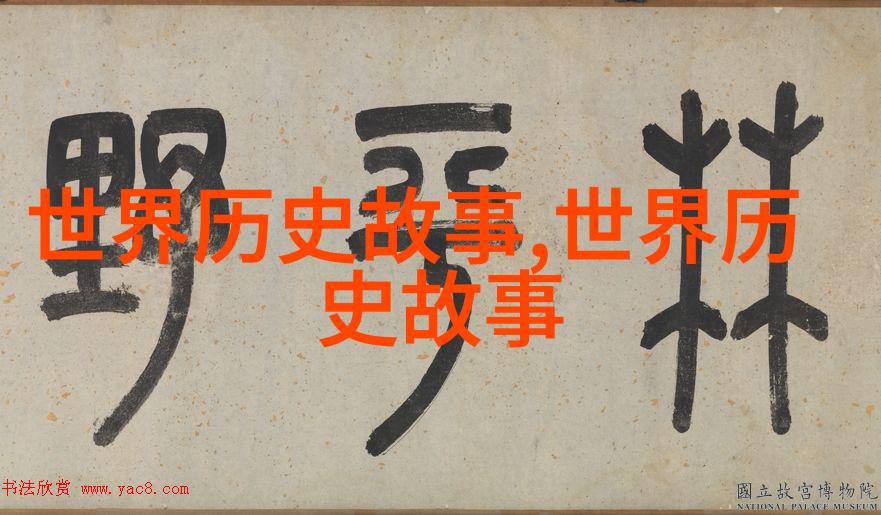 世界历史故事,世界历
史故事
林 野
书法欣赏 www.yac8.com
國立故宮博物院
NATIONAL PALACE MUSEUM